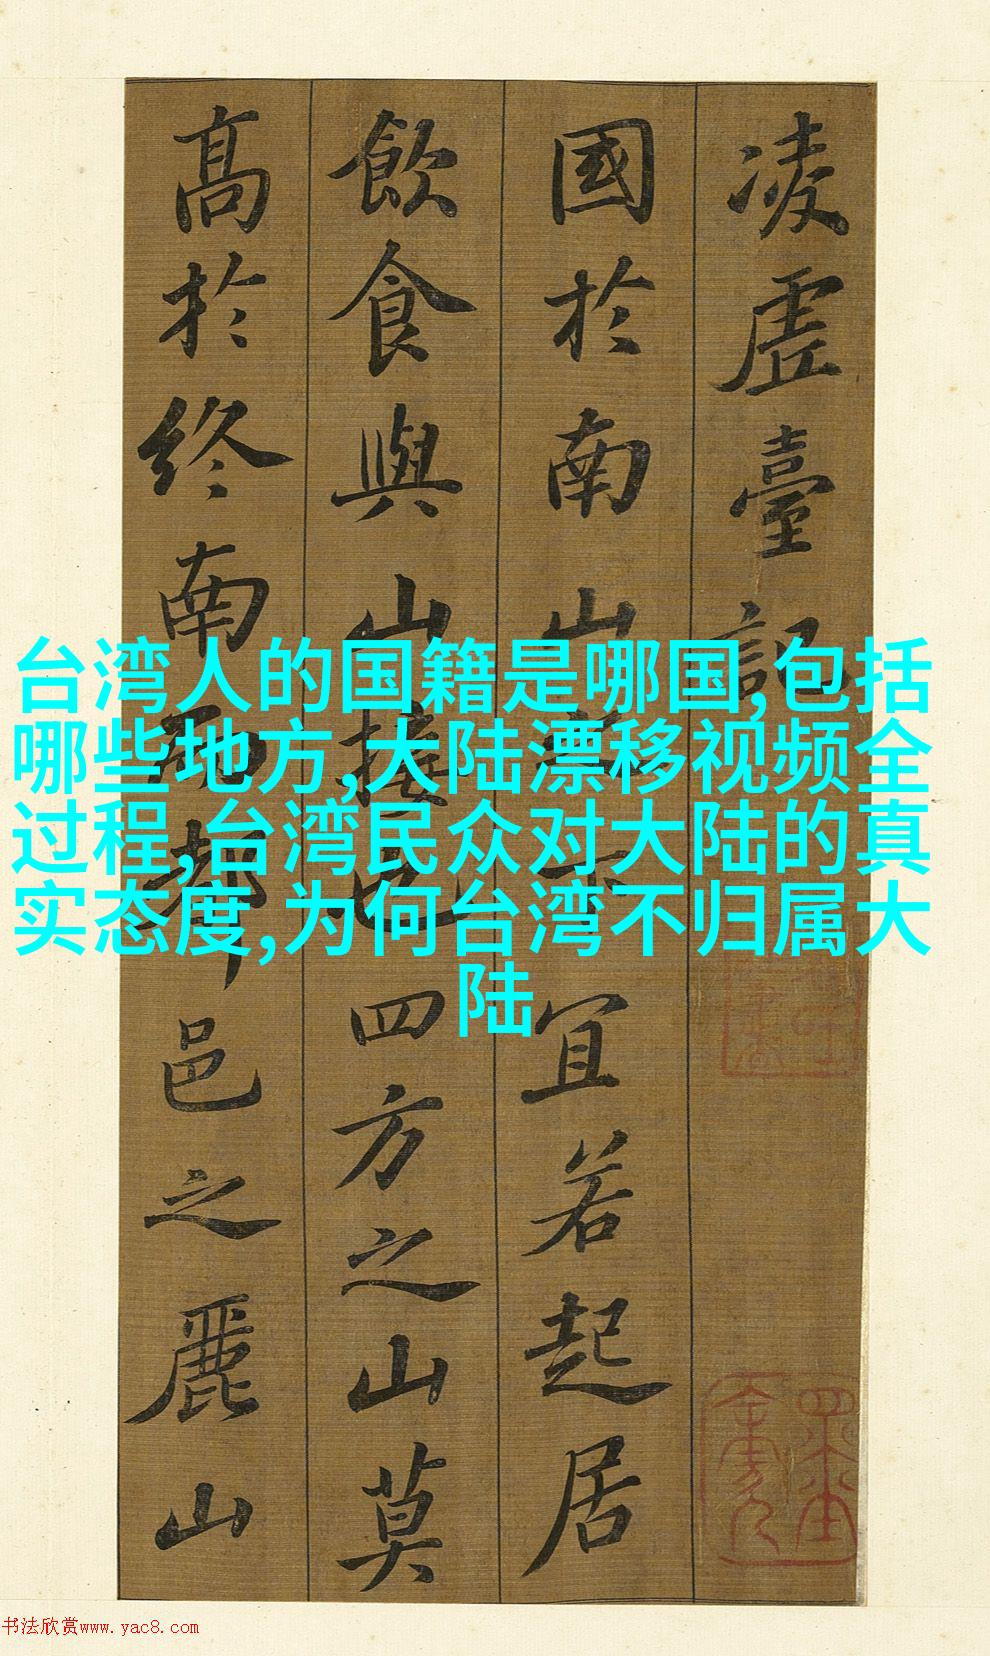 凌虛臺記
國於南山之下宜若起居
飲食與山接也四方之山莫
高於終南而都邑之麗山
台湾人的国籍是哪国,包括
哪些地方,大陆漂移视频全
过程,台湾民众对大陆的真
实态度,为何台湾不归属大
陆
书法欣赏www.yac8.com